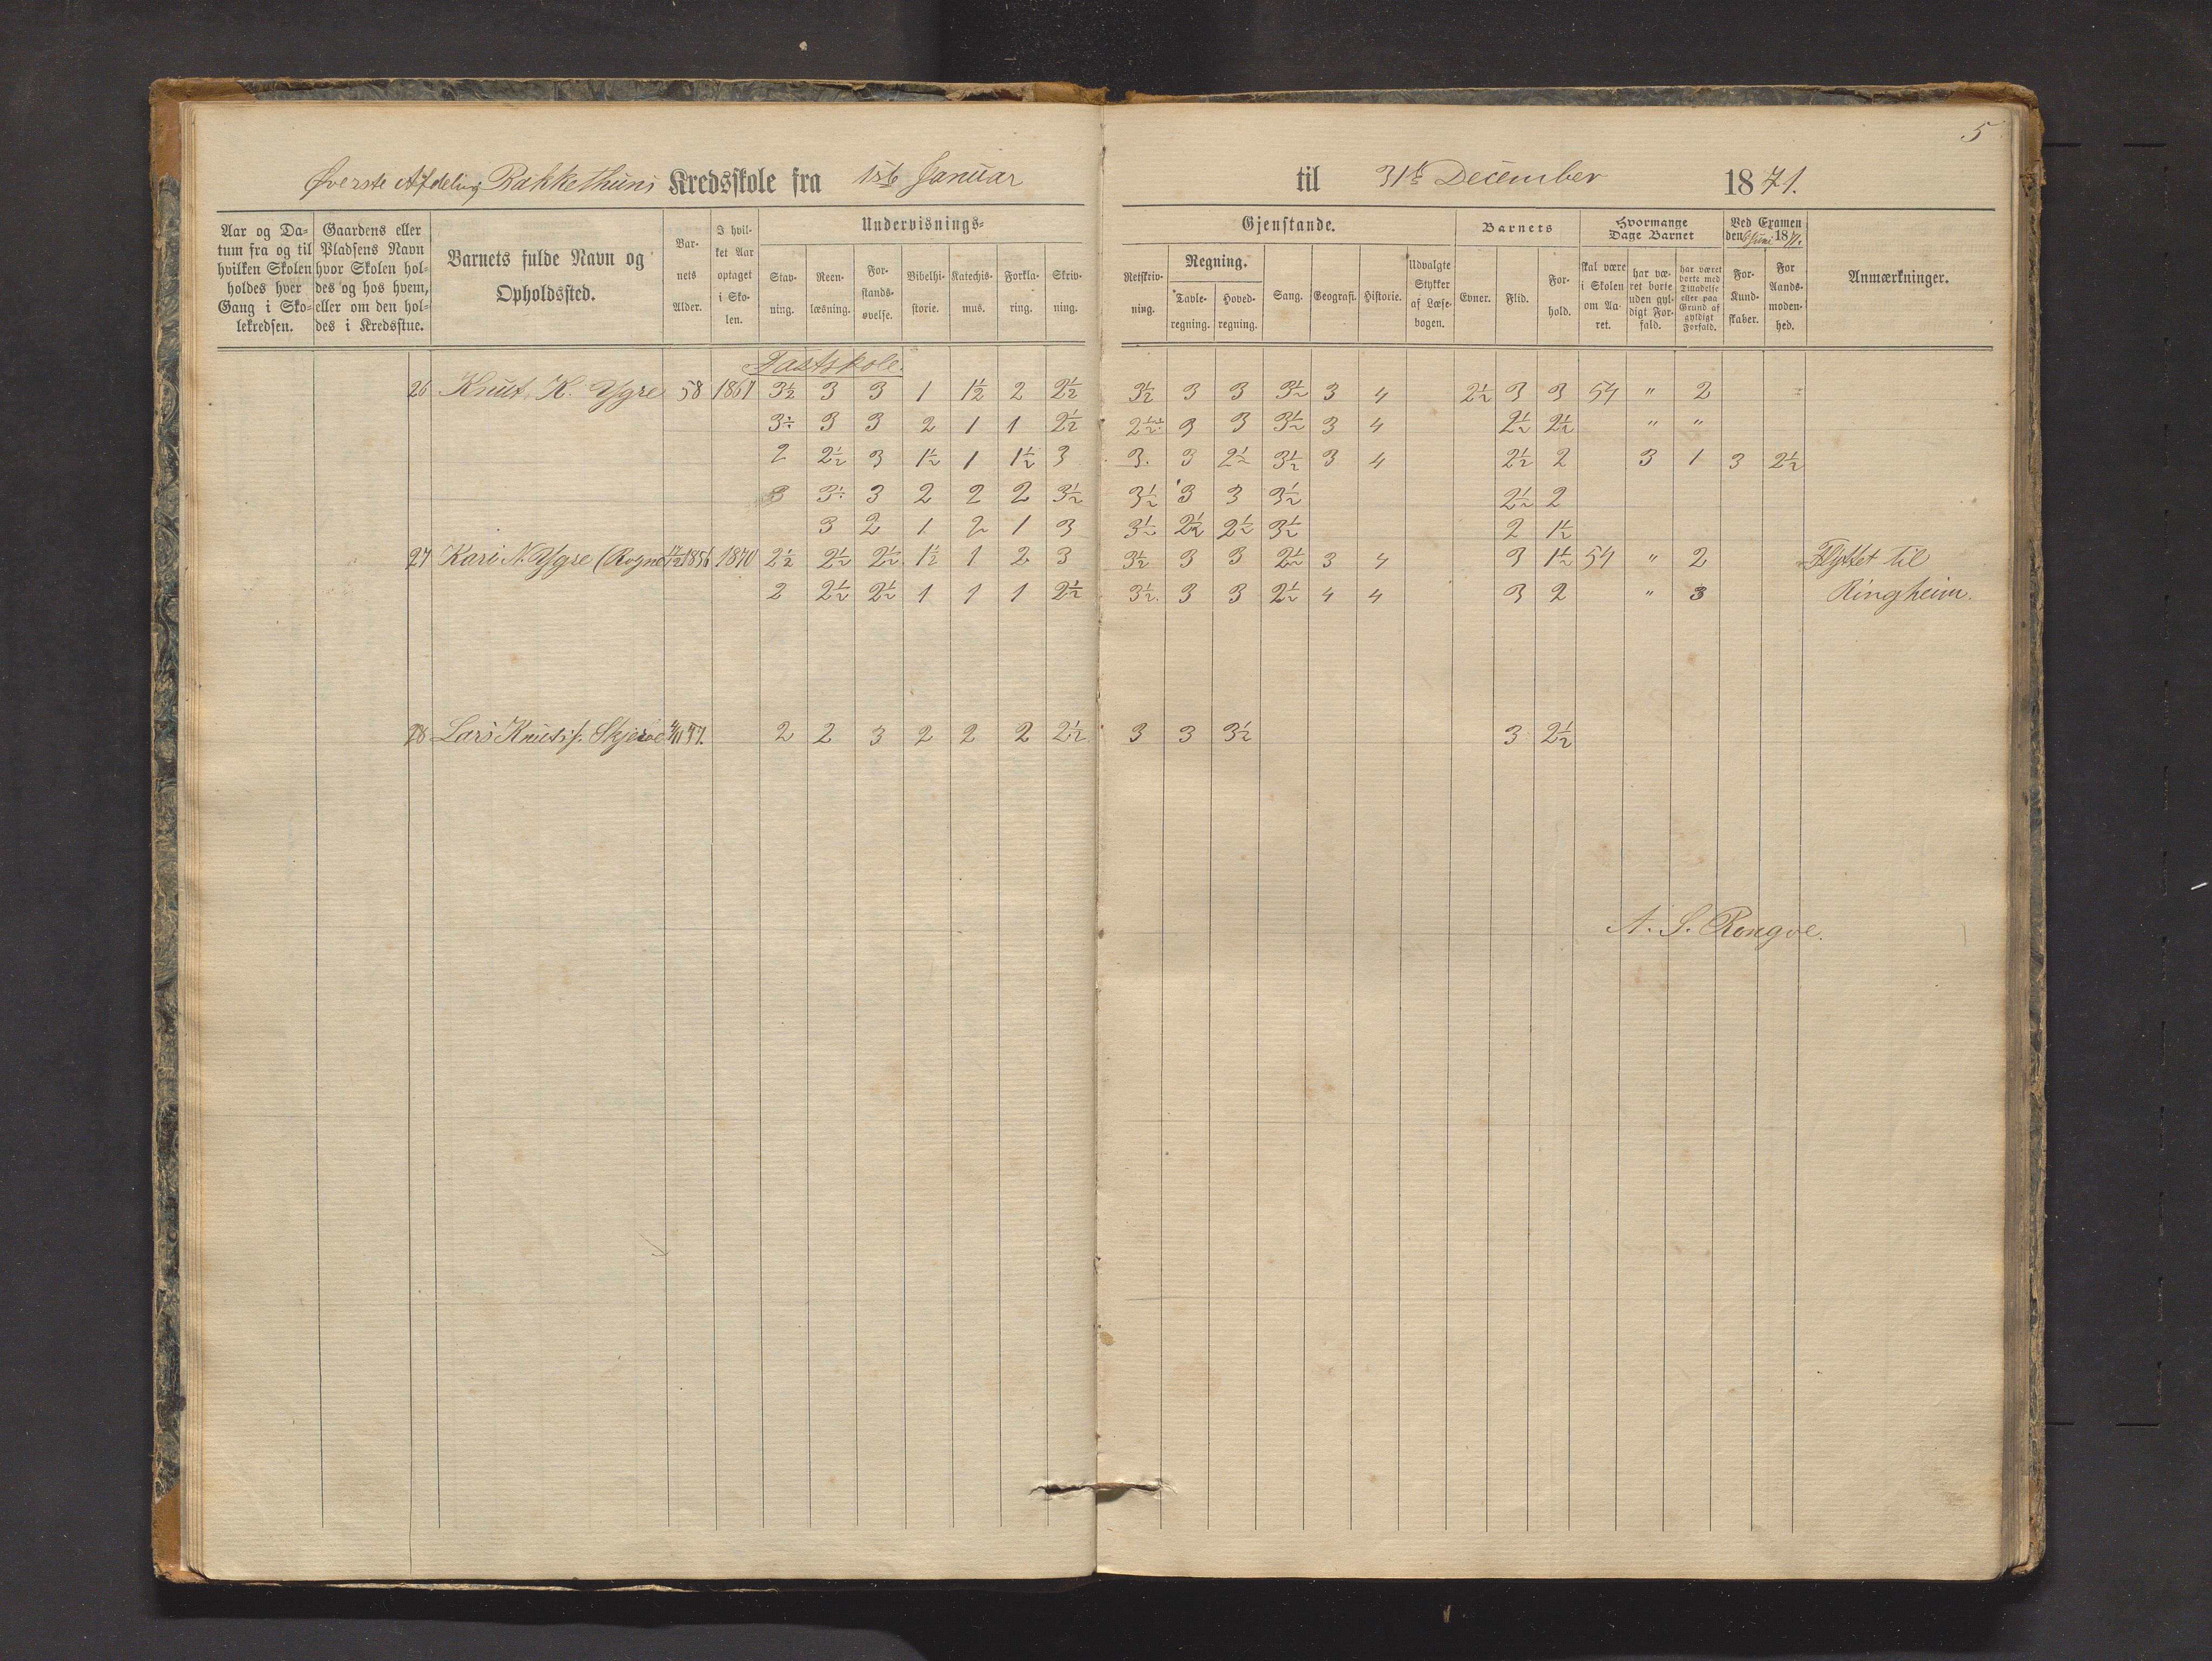 5
Øverste Afdeling Bakkethuns Kredsskole fra 1ste Januar til 31te December 1871.
Aar og Da-
tum fra og til
hvilken Skolen
holdes hver
Gang i Sko-
lekredsen.
Gaardens eller
Pladsens Navn
hvor Skolen hol-
des og hos hvem,
eller om den hol-
des i Kredsstue.
Barnets fulde Navn og
Opholdssted.
Bar-
nets
Alder.
I hvil-
ket Aar
optaget
i Sko-
len.
Undervisnings-
Stav-
ning.
Reen-
læsning.
For-
stands-
øvelse.
Bibelhi-
storie.
Katechis-
mus.
Forkla-
ring.
Skriv-
ning.
Gjenstande.
Retskriv-
ning.
Regning.
Tavle-
regning.
Hoved-
regning.
Sang.
Geografi.
Historie.
Udvalgte
Stykker
af Læse-
bogen.
Barnets
Evner.
Flid.
For-
hold.
Hvormange
Dage Barnet
skal være
i Skolen
om Aa-
ret.
har væ-
ret borte
uden gyl-
digt For-
fald.
har været
borte med
Tilladelse
eller paa
Grund af
gyldigt
Forfald.
Ved Examen
den Juni 1871.
For-
Kund-
skaber.
For
Aands-
moden-
hed.
Anmærkninger.
Fastskole.
26 Knut K. Ygre 58 1867 3½ 3 3 1 1½ 2 2½ 3½ 3 3 3½ 3 4 2½ 3 3 54 " 2
3½ 3 3 2 1 1 2½ 2½ 3 3 3½ 3 4 2½ 2½ " "
2 2½ 3 1½ 1 1½ 3 3. 3 2½ 3½ 3 4 2½ 2 3 1 3 2½
3 3½ 3 2 2 2 3½ 3½ 3 3 3½ 2½ 2
3 2 1 2 1 3 3½ 2½ 2½ 3½ 2 1½
27 Kari N. Ygre (Rogne 1856 1870 2½ 2½ 2½ 1½ 1 2 3 3½ 3 3 2½ 3 4 3 1½ 54 " 2 Flyttet til
2 2½ 2½ 1 1 1 2½ 3½. 3 3 2½ 4 4 3 2 " 3 Ringheim.
28 Lars Knuts. Skjerve 57. 2 2 3 2 2 2 2½ 3 3 3½ 3 2½
A. S. Rongve.